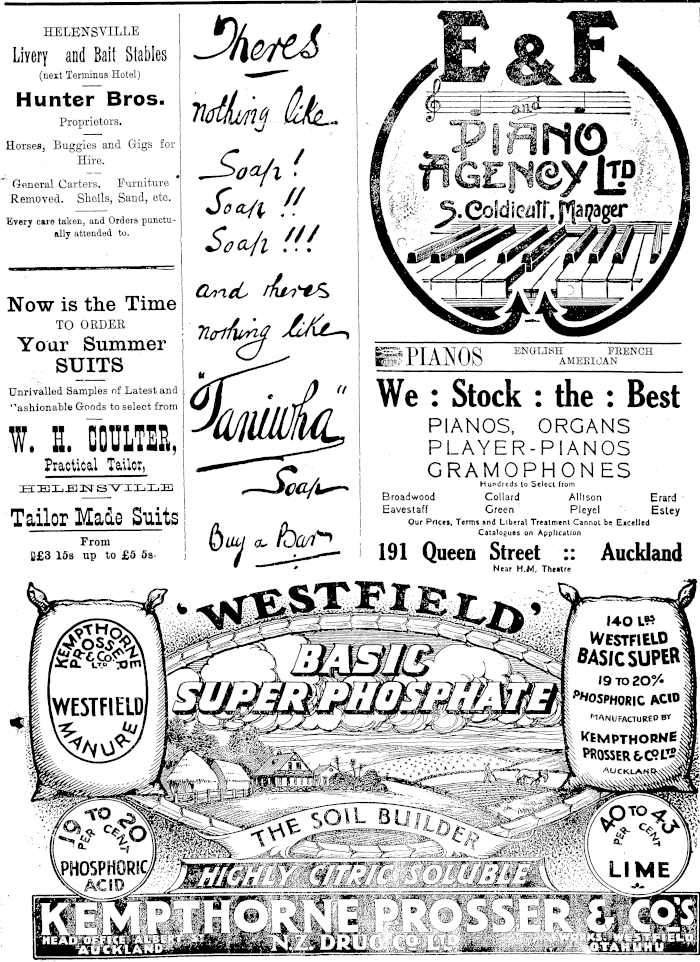 HELENSVILLE
Livery and Bait Stables
(next Terminus Hotel)
Hunter Bros.
Proprietors.
Horses, Buggies and Gigs for
Hire.
General Carters, Furniture
Removed. Shells, Sand, etc.
Every care taken, and Orders punctu-
ally attended to.
Now is the Time
TO ORDER
Your Summer
SUITS
Unrivalled Samples of Latest and
Fashionable Goods to select from
W. H. COULTER,
Practical Tailor,
HELENSVILLE
Tailor Made Suits
From
£3 15s up to £5 5s.
Theres
nothing like
Soap!
Soap!!
Soap!!!
and theres
nothing like
"Taniwha"
Soap
Buy a Bar
E & F
and
PIANO
AGENCY LTD
S. Coldicutt, Manager
PIANOS ENGLISH FRENCH
AMERICAN
We : Stock : the : Best
PIANOS, ORGANS
PLAYER-PIANOS
GRAMOPHONES
Hundreds to Select from
Broadwood Collard Allison Erard
Eavestaff Green Pleyel Estey
Our Prices, Terms and Liberal Treatment Cannot be Excelled
Catalogues on Application
191 Queen Street :: Auckland
Near H.M. Theatre
'WESTFIELD'
BASIC
SUPER PHOSPHATE
KEMPTHORNE
PROSSER
& CO.
LTD
WESTFIELD
MANURE
140 LBS
WESTFIELD
BASIC SUPER
19 TO 20%
PHOSPHORIC ACID
MANUFACTURED BY
KEMPTHORNE
PROSSER & CO LTD
AUCKLAND
19 TO 20
PER CENT
PHOSPHORIC
ACID
THE SOIL BUILDER
HIGHLY CITRIC SOLUBLE
40 TO 43
PER CENT
LIME
KEMPTHORNE PROSSER & CO'S
HEAD OFFICE ALBERT ST
AUCKLAND
N.Z. DRUG CO LTD
WORKS WESTFIELD
OTAHUHU